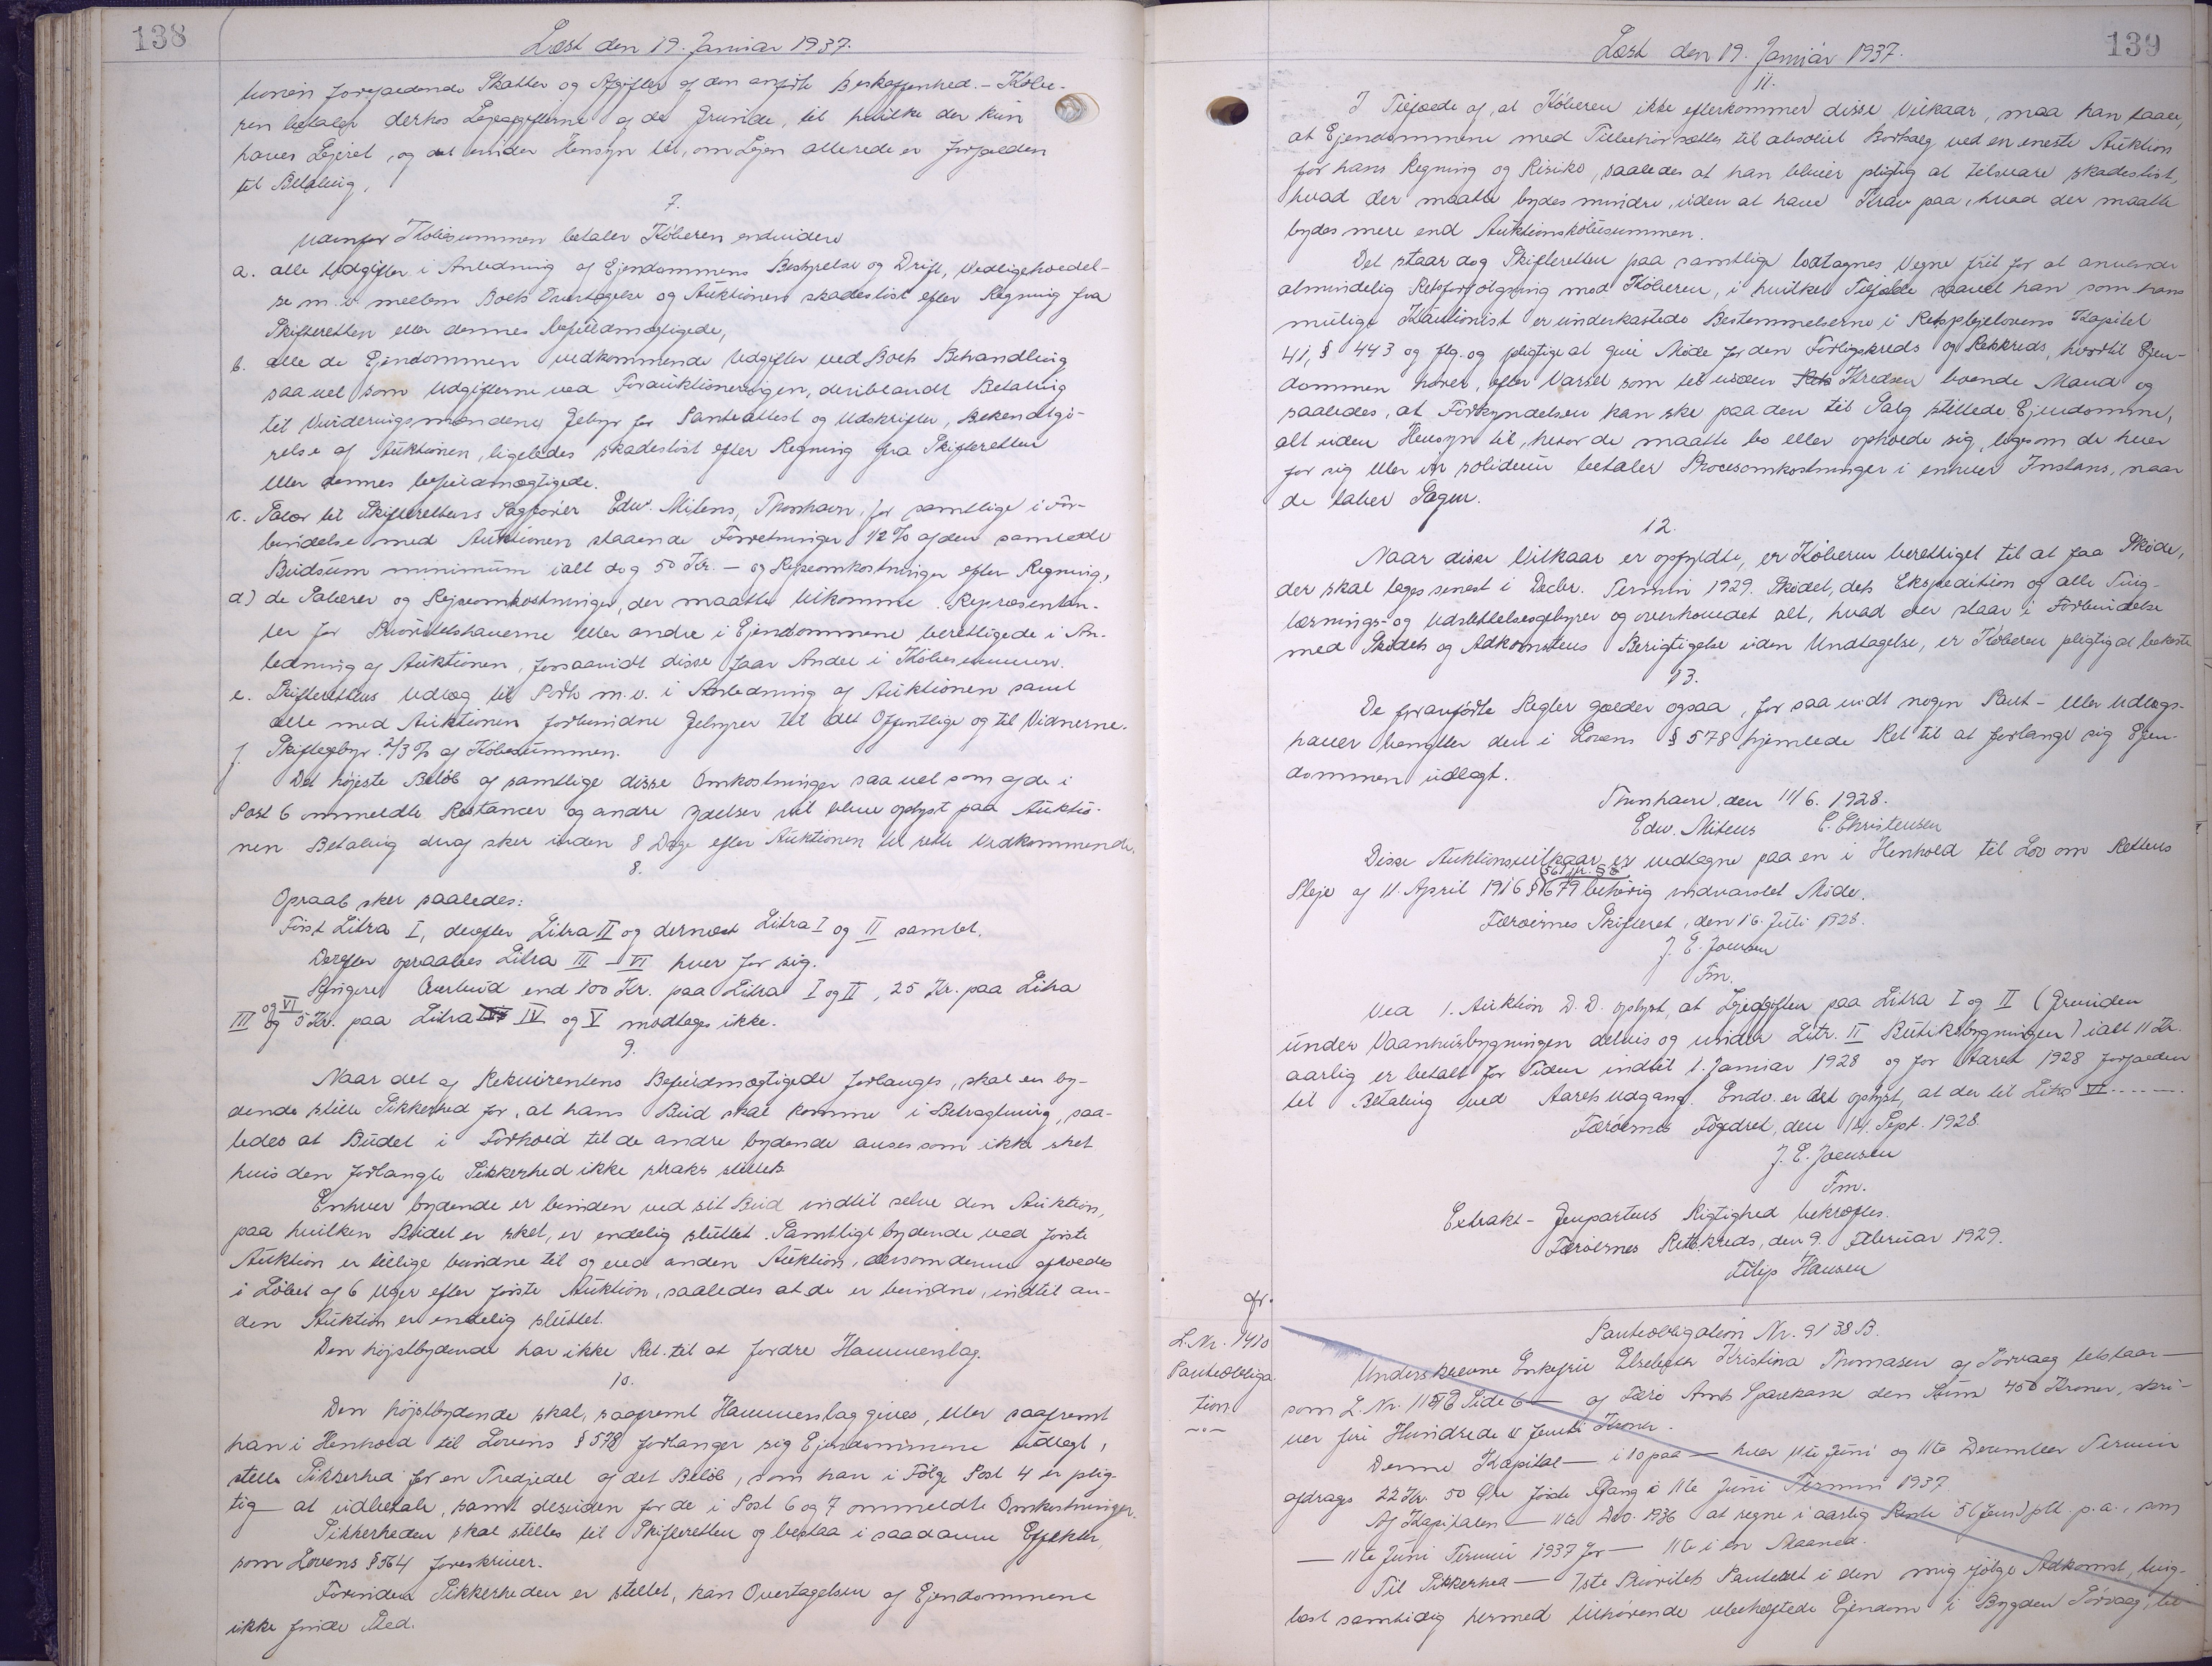 138
Læst den 19. Januar 1937.
tionen forfaldende Skatter og Afgifter af den anførte Beskaffenhed. - Købe-
ren betaler derhos Lejeafgifterne af de Grunde, til hvilke der kun
haves Lejeret, og det uden Hensyn til, om Lejen allerede er forfalden
til Betaling.
7.
Udenfor Købesummen betaler Køberen endvidere
a. alle Udgifter i Anledning af Ejendommens Bestyrelse og Drift, Vedligeholdel-
se m.v. mellem Boets Overtagelse og Auktionen skadesløst efter Regning fra
Skifteretten eller dennes befuldmægtigede,
b. alle de Ejendommen vedkommende Udgifter ved Boets Behandling
saavel som Udgifterne ved Forauktioneringen, deriblandt Betaling
til Vurderingsmændene Gebyr for Panteattest og Udskrifter, Bekendtgø-
relse af Auktionen, ligeledes skadesløst efter Regning fra Skifteretten
eller dennes befuldmægtigede.
c. Salær til Skifterettens Sagfører Edw. Mitens, Thorshavn, for samtlige i For-
bindelse med Auktionen staaende Forretninger 1/2 % af den samlede
Budsum minimum ialt dog 50 Kr. - og Rejseomkostninger efter Regning,
d) de Salærer og Rejseomkostninger, der maatte tilkomme Repræsentan-
ter for Prioritetshaverne eller andre i Ejendommene berettigede i An-
ledning af Auktionen, forsaavidt disse faar Andel i Købesummen.
e. Skifterettens Udlæg til Porto m.v. i Anledning af Auktionen samt
alle med Auktionen forbundne Gebyrer til det Offentlige og til Vidnerne.
f. Skiftegebyr 2/3 % af Købesummen.
Det højeste Beløb af samtlige disse Omkostninger saa vel som af de i
Post 6 ommeldte Restancer og andre Ydelser vil blive oplyst paa Auktio-
nen Betaling deraf sker inden 8 Dage efter Auktionen til rette Vedkommende.
8.
Opraab sker saaledes:
Først Litra I, derefter Litra II og dernæst Litra I og II samlet.
Derefter opraabes Litra III - VI hver for sig.
Ringere Overbud end 100 Kr. paa Litra I og II, 25 Kr. paa Litra
og VI
III og 5 Kr. paa Litra IV og V modtages ikke.
9.
Naar det af Rekvirentens Befuldmægtigede forlanges, skal en by-
dende stille Sikkerhed for, at hans Bud skal komme i Betragtning, saa-
ledes at Budet i Forhold til de andre bydende anses som ikke sket
hvis den forlangte Sikkerhed ikke straks stilles.
Enhver bydende er bunden ved sit Bud indtil selve den Auktion,
paa hvilken Budet er sket, er endelig sluttet. Samtlige bydende ved første
Auktion er tillige bundne til og ved anden Auktion, dersom denne afholdes
i Løbet af 6 Uger efter første Auktion, saaledes at de er bundne, indtil an-
den Auktion er endelig sluttet.
Den højstbydende har ikke Ret til at fordre Hammerslag.
10.
Den højstbydende skal, saafremt Hammerslag gives, eller saafremt
han i Henhold til Lovens § 578 forlanger sig Ejendommene udlagt,
stille Sikkerhed for en Tredjedel af det Beløb, som han i Følge Post 4 er plig-
tig at udbetale, samt desuden for de i Post 6 og 7 ommeldte Omkostninger.
Sikkerheden skal stilles til Skifteretten og bestaa i saadanne Effekter,
som Lovens § 564 foreskriver.
Forinden Sikkerheden er stillet, kan Overtagelsen af Ejendommene
ikke finde Sted.
139
Læst den 19. Januar 1937.
11.
I Tilfælde af, at Køberen ikke efterkommer disse Vilkaar, maa han taale,
at Ejendommene med Tilbehør sættes til absolut Bortsalg ved en eneste Auktion
for hans Regning og Risiko, saaledes at han bliver pligtig at tilsvare skadesløst,
hvad der maatte bydes mindre, uden at have Krav paa, hvad der maatte
bydes mere end Auktionskøbesummen.
Det staar dog Skifteretten paa samtlige Lodtagnes Vegne frit for at anvende
almindelig Retsforfølgning mod Køberen, i hvilket Tilfælde saavel han som hans
mulige Kautionist er underkastede Bestemmelserne i Retsplejelovens Kapitel
41, § 443 og flg. og pligtige at give Møde for den Forligskreds og Retskreds, hvortil Ejen-
dommen hører, efter Varsel som til uden Kredsen boende Mand og
saaledes, at Forkyndelsen kan ske paa den til Salg stillede Ejendomme,
alt uden Hensyn til, hvor de maatte bo eller opholde sig, ligesom de hver
for sig eller in solidum betaler Procesomkostninger i enhver Instans, naar
de taber Sagen.
12.
Naar disse Vilkaar er opfyldte, er Køberen berettiget til at faa Skøde,
der skal tages senest i Decbr. Termin 1929. Skødet, dets Ekspedition og alle Ting-
læsnings- og Udslettelsesgebyrer og overhovedet alt, hvad der staar i Forbindelse
med Skødets og Adkomstens Berigtigelse uden Undtagelse, er Køberen pligtig at bekoste.
13.
De foranførte Regler gælder ogsaa, for saa vidt nogen Pant- eller Udlægs-
haver benytter den i Lovens § 578 hjemlede Ret til at forlange sig Ejen-
dommen udlagt.
Thorshavn, den 11/6. 1928.
Edw. Mitens C. Christensen
Disse Auktionsvilkaar er vedtagne paa en i Henhold til Lov om Rettens
Pleje af 11. April 1916 § 679 behørig indvarslet Møde.
Færøernes Skifteret, den 16. Juli 1928.
J. E. Joensen
Fm.
Ved 1. Auktion D.D. oplyst, at Lejeafgiften paa Litra I og II (Grunden
under Vaanhusbygningen delvis og under Litr. II Butiksbygningen) ialt 11 Kr.
aarlig er betalt for Tiden indtil 1. Januar 1928 og for Aaret 1928 forfalden
til Betaling ved Aarets Udgang. Endv. er det oplyst, at der til Litra VI --------
Færøernes Fogedret, den 14. Sept. 1928.
J. E. Joensen
Fm.
Extrakt-Genpartens Rigtighed bekræftes.
Færøernes Retskreds, den 9. Februar 1929.
Filip Hansen
fr.
L. Nr. 1410
Panteobliga-
tion
Panteobligation Nr. 9138 B.
Underskrevne Enkefrue Elsebeth Kristina Thomasen af Sørvaag tilstaar —
som L. Nr. Side 6 — af Færø Amts Sparekasse den Sum 450 Kroner, skri-
ver fire Hundrede og femti Kroner.
Denne Kapital — i 10 paa — hver 11te Juni og 11te December Termin
afdrages 22 Kr. 50 Øre første Gang i 11te Juni Termin 1937
Af Kapitalen — 11te Dec. 1936 at regne i aarlig Rente 5 (fem) pCt. p.a., som
— 11te Juni Termin 1937 for — 11te i en Maaned.
Til Sikkerhed — 1ste Prioritets Panteret i den mig ifølge Adkomst, ting-
læst samtidig hermed tilhørende ubehæftede Ejendom i Bygden Sørvaag, til